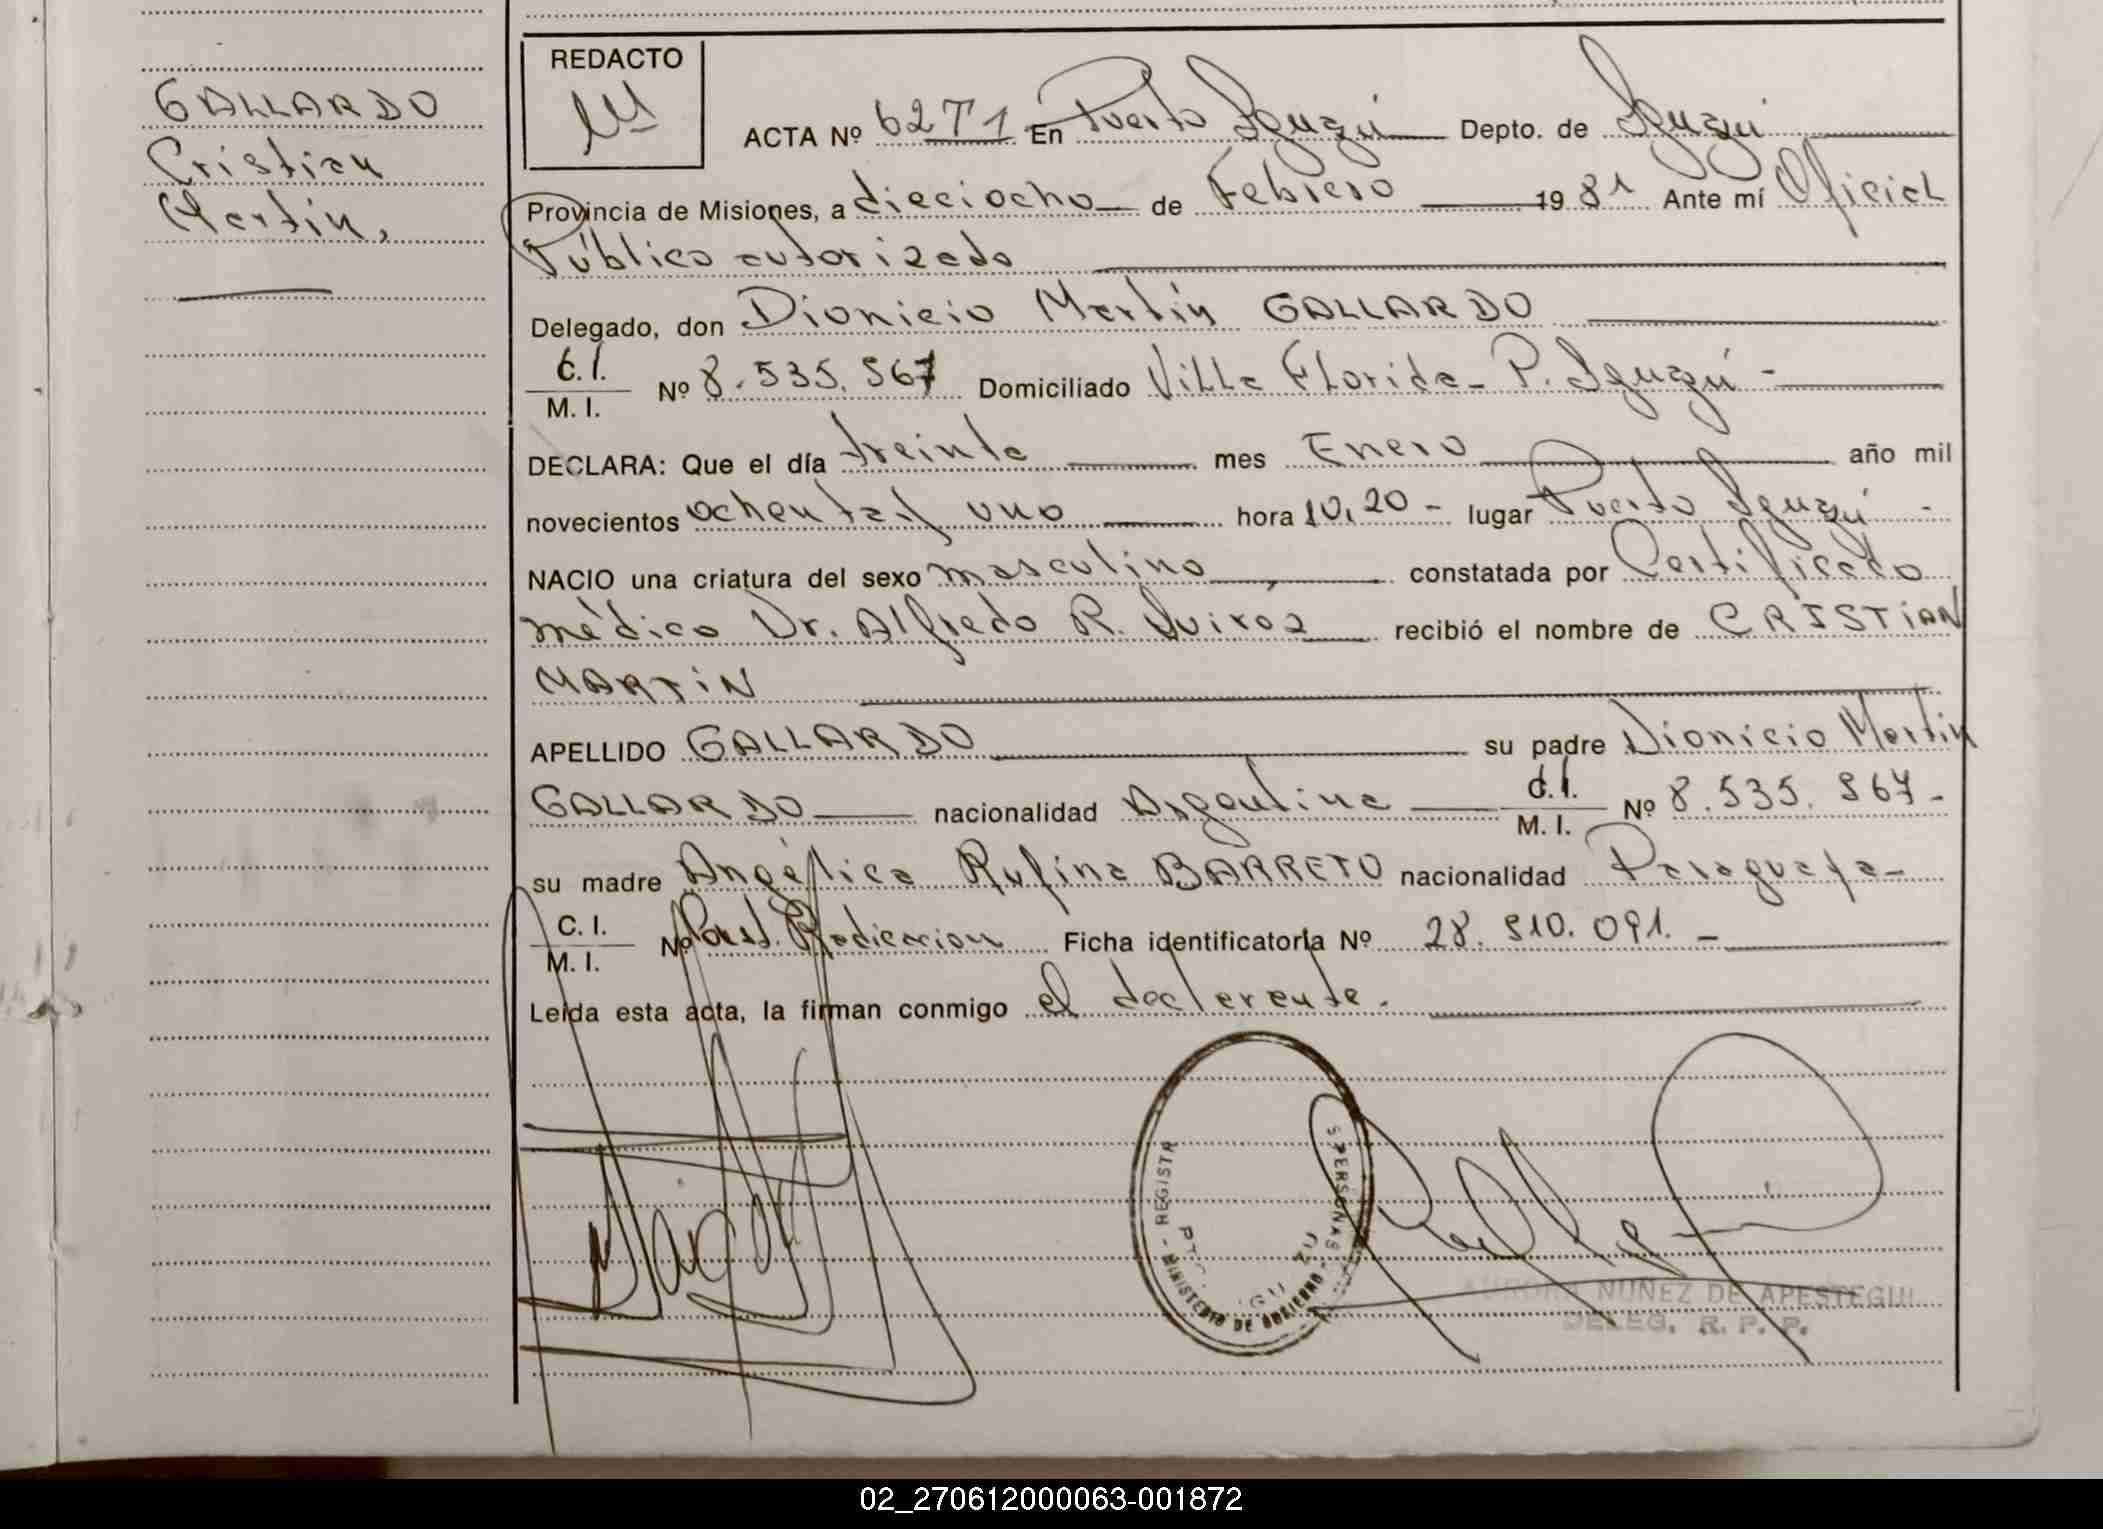 GALLARDO
Cristian
Martín,
REDACTO
ACTA Nº 62T1 En Puerto Iguazú Depto. de Iguazú
Provincia de Misiones, a dieciocho de Febrero 1981 Ante mí Oficial
Público autorizado
Delegado, don Dionicio Martín GALLARDO
C.I.
M. I. Nº 8.535.967 Domiciliado Villa Florida - P. Iguazú -
DECLARA: Que el día treinta mes Enero año mil
novecientos ochenta y uno hora 10,20 - lugar Puerto Iguazú -
NACIO una criatura del sexo masculino constatada por Certificado
médico Dr. Alfredo R. Quiroz recibió el nombre de CRISTIAN
MARTIN
APELLIDO GALLARDO su padre Dionicio Martin
GALLARDO nacionalidad Argentina C.I. M. I. Nº 8.535.967-
su madre Angélica Rufina BARRETO nacionalidad Paraguaya-
C. I.
M. I. Nº Radicacion Ficha identificatoria Nº 28.910.091. -
Leída esta acta, la firman conmigo el declarente.
REGISTR PERSONAS
MINISTERIO DE GOBIERNO
AURORA NUÑEZ DE APESTEGUI
DELEG. R. P. P.
02_270612000063-001872